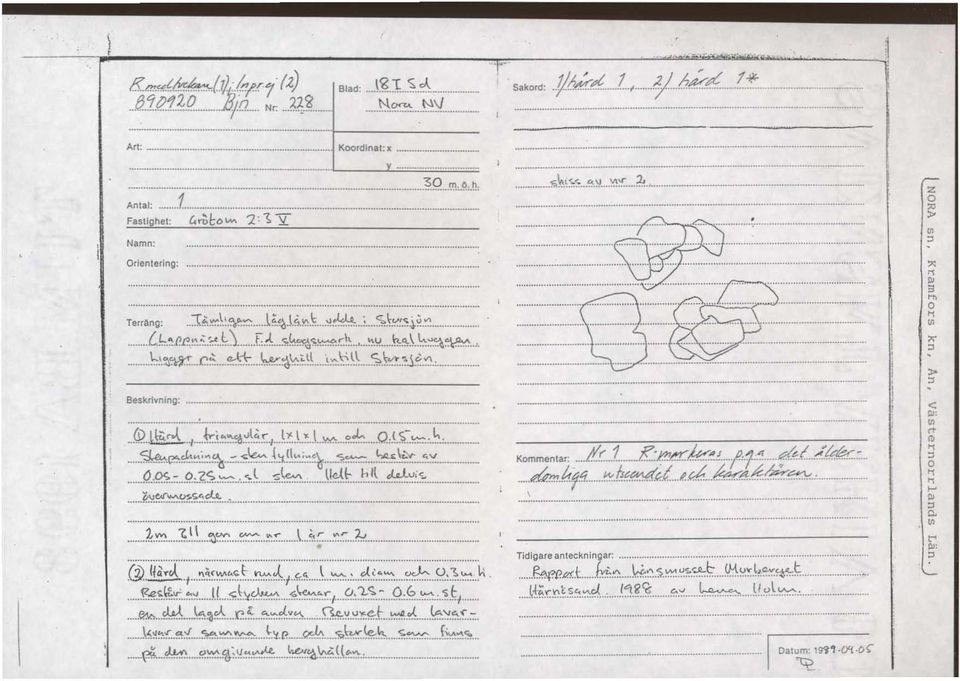 R med (1); Inprej (2)
890920 Bjn Nr: 228
Blad: 18I 5d
Nora NV
Art:
Koordinat: x
y
30 m. ö. h.
Antal: 1
Fastighet: Gråtom 2:3 V
Namn:
Orientering:
Terräng: Tämligen låglänt udde i Storsjön
(Lappnäset). F.d skogsmark, nu kalhuggen.
Ligger på ett berghäll intill Storsjön.
Beskrivning:
① Härd, triangulär, 1x1x1 m och 0.15 m. h.
Stenpackning - stenfyllning som består av
0.05 - 0.25 m. st sten. Helt till delvis
övermossade.
2 m om nr 1 är nr 2
② Härd, närmast rund, ca 1 m. i diam och 0.3 m h.
Består av 11 stycken stenar, 0.25 - 0.6 m. st,
en del lagd på andra. Bevuxet med lavar -
lavar av samma typ och storlek som finns
på den omgivande berghällan.
Sakord: 1) härd 1, 2) härd 1*
skiss av nr 2
Kommentar: Nr 1 R-markeras p g a det ålder-
domliga utseendet och karaktären.
Tidigare anteckningar:
Rapport från länsmuseet (Murberget
Härnösand. 1988 av Holm.
Datum: 1989-09-05
NORA sn, Kramfors kn, Ån, Västernorrlands Län.